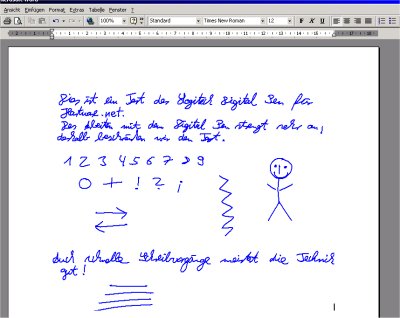 Microsoft Word
Ansicht Einfügen Format Extras Tabelle Fenster ?
100% Standard Times New Roman 12 F K U
Dies ist ein Test des Logitec Digital Pen für
Hartware.net.
Das Arbeiten mit dem Digital Pen strengt sehr an,
deshalb beschränken wir den Text.
1 2 3 4 5 6 7 8 9
0 + ! ? ;
Auch schnelle Schreibvorgänge meistert die Technik
gut!